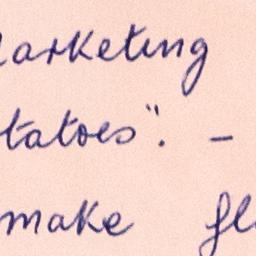 Marketing
tatoes". –
make fl